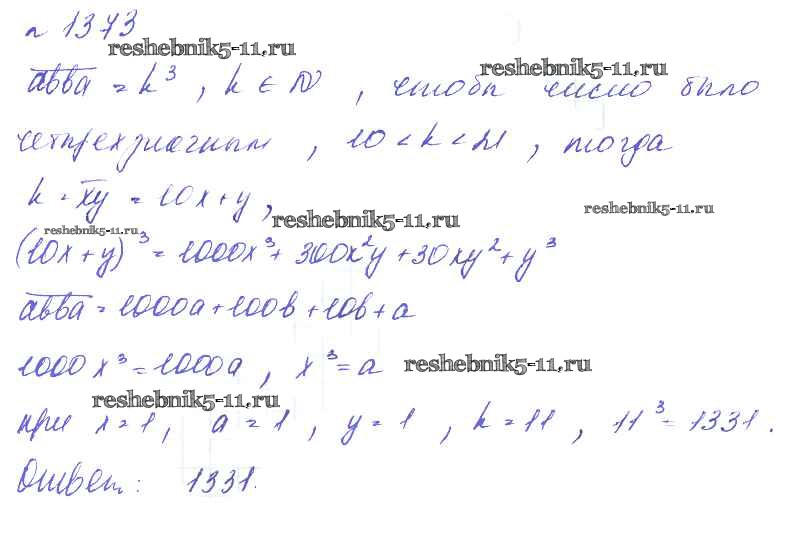 n 1373
reshebnik5-11.ru
reshebnik5-11.ru
abba = k³, k ∈ N, чтобы число было
четырехзначным, 10 < k < 21, тогда
k = xy = 10x + y,
reshebnik5-11.ru
reshebnik5-11.ru
reshebnik5-11.ru
(10x + y)³ = 1000x³ + 300x²y + 30xy² + y³
abba = 1000a + 100b + 10b + a
1000x³ = 1000a, x³ = a
reshebnik5-11.ru
reshebnik5-11.ru
при x = 1, a = 1, y = 1, k = 11, 11³ = 1331.
Ответ: 1331.